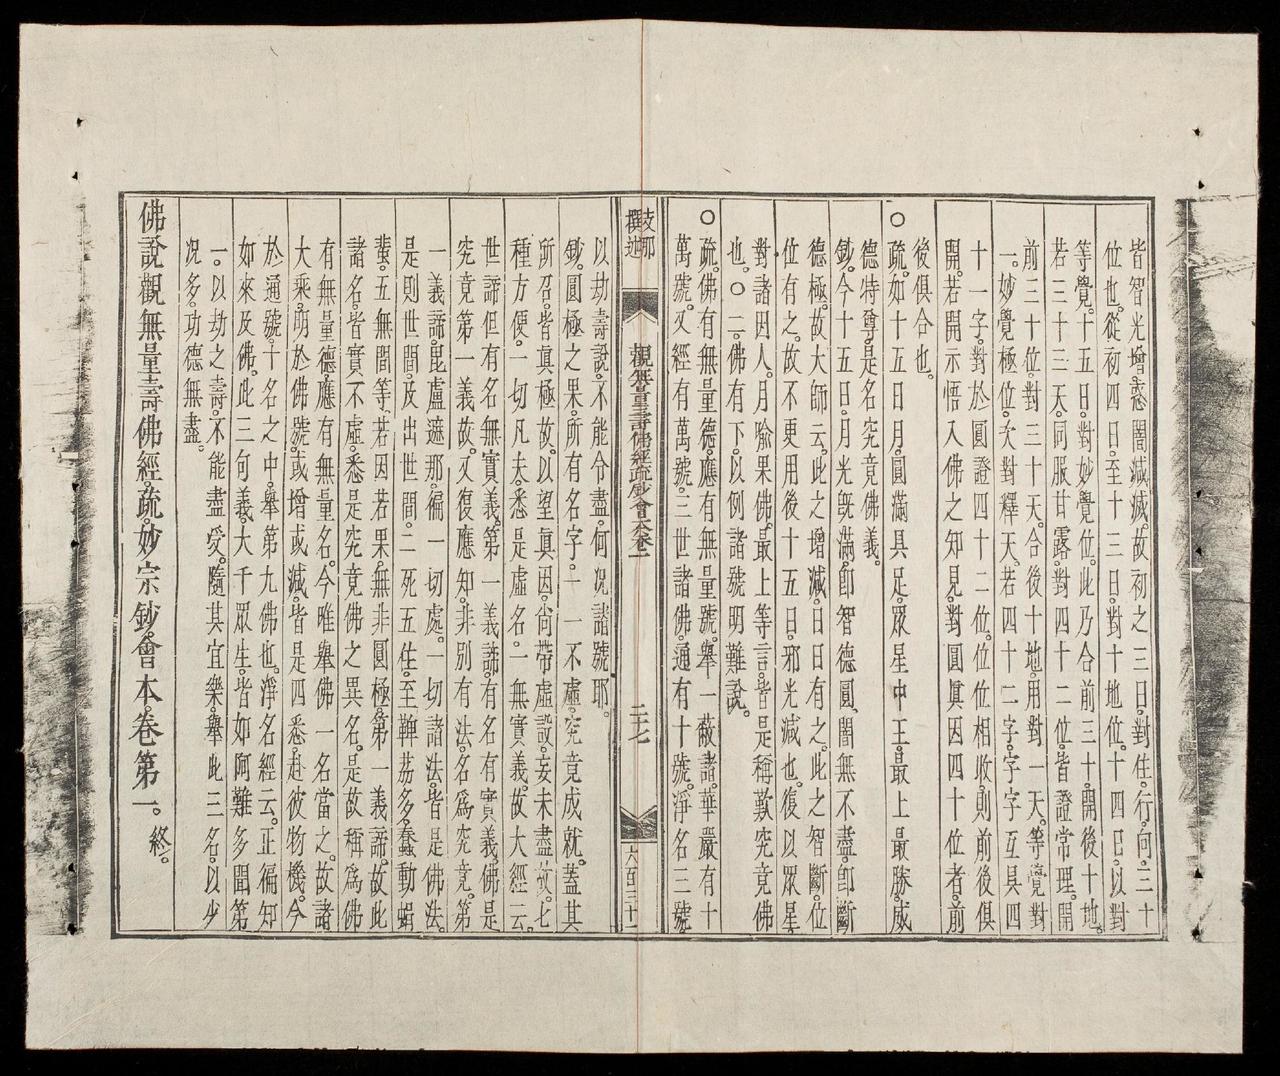 皆智光增䛐闇減滅。故初之三日。對住。行。向。三十
位也。從初四日。至十三日。對十地位。十四日。以對
等覺。十五日。對妙覺位。此乃合前三十。開後十地。
若三十三天。同服甘露。對四十二位。皆證常理。開
前三十位。對三十天。合後十地。用對一天。等覺對
一。妙覺極位。次對釋天。若四十二字。字字互具四
十一字。對於圓證四十二位。位位相收。則前後俱
開。若開示悟入佛之知見。對圓眞因四十位者。前
後俱合也。
○疏。如十五日月。圓滿具足。眾星中王。最上最勝。威
德特尊。是名究竟佛義。
鈔。今十五日。月光旣滿。卽智德圓。闇無不盡。卽斷
德極。故大師云。此之增減。日日有之。此之智斷。位
位有之。故不更用後十五日。邪光減也。復以眾星
對諸因人。月喻果佛。最上等言。皆是稱歎究竟佛
也。○二。佛有下。以例諸號明難說。
○疏。佛有無量德。應有無量號。舉一蔽諸。華嚴有十
萬號。又經有萬號。三世諸佛。通有十號。淨名三號。
支那
撰述
觀無量壽佛經疏鈔會本卷一
二七
六百三十一
以劫壽說。不能令盡。何況諸號耶。
鈔。圓極之果。所有名字。一一不虛。究竟成就。蓋其
所召。皆眞極故。以望眞因。尙帶虛設。妄未盡故。七
種方便。一切凡夫。悉是虛名。一無實義。故大經云。
世諦但有名無實義。第一義諦。有名有實義。佛是
究竟第一義故。又復應知。非別有法。名爲究竟。第
一義諦。毘盧遮那。徧一切處。一切諸法。皆是佛法。
是則世間。及出世間。二死五住。至鞞荔多。蠢動蜎
蜚。五無間等。若因若果。無非圓極。第一義諦。故此
諸名。皆實不虛。悉是究竟佛之異名。是故稱爲佛
有無量德。應有無量名。今唯舉佛一名當之。故諸
大乘。明於佛號。或增或減。皆是四悉。赴彼物機。今
於通號。十名之中。舉第九佛也。淨名經云。正徧知
如來及佛。此三句義。大千眾生。皆如阿難多聞第
一。以劫之壽。不能盡受。隨其宜樂。舉此三名。以少
況多。功德無盡。
佛說觀無量壽佛經疏妙宗鈔會本卷第一。 終。